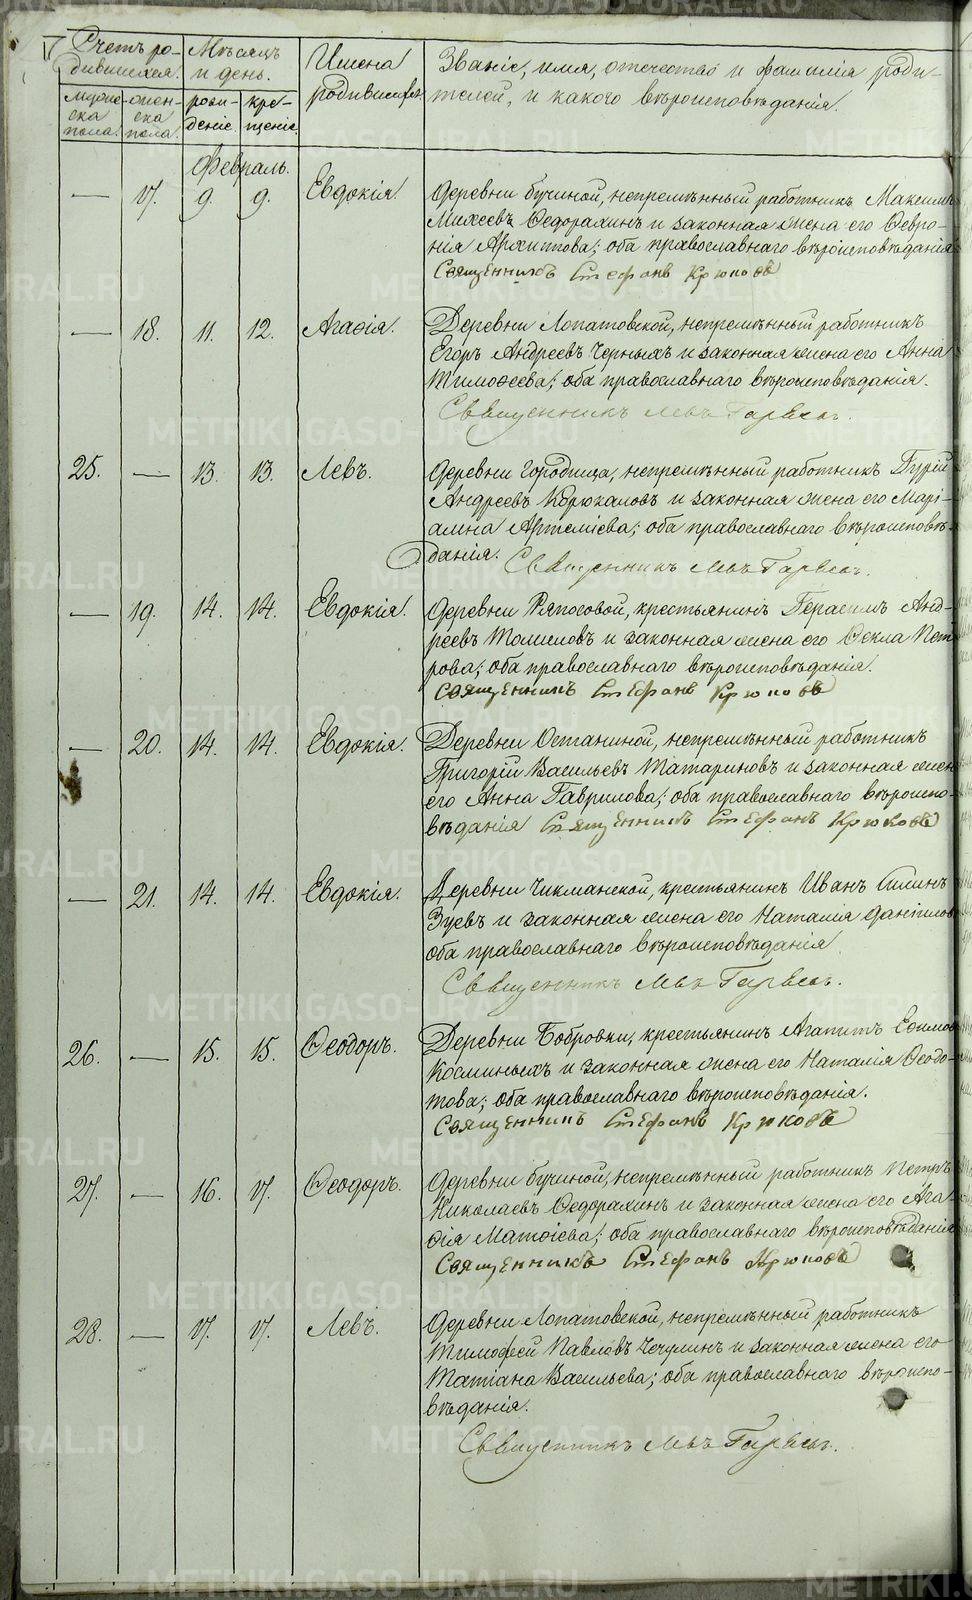 Счетъ ро-
дившихся.
Мѣсяцъ
и день.
Имена
родившихся.
Званіе, имя, отечество и фамилія роди-
телей, и какого вѣроисповѣданія.
мужес-
ска
пола.
жен-
ска
пола.
рож-
деніе.
кре-
щеніе.
Февраль.
— 17. 9. 9. Евдокія.
Деревни Бучиной, непремѣнный работникъ Максимъ
Михеевъ Ѳедорахинъ и законная жена его Февро-
нія Архипова; оба православнаго вѣроисповѣданія
Священникъ Стефанъ Крюковъ
— 18. 11. 12. Агаѳія.
Деревни Лопатовской, непремѣнный работникъ
Егоръ Андреевъ Черныхъ и законная жена его Анна
Тимоѳеева; оба православнаго вѣроисповѣданія.
Священникъ Левъ
25. — 13. 13. Левъ.
Деревни Городища, непремѣнный работникъ Гурій
Андреевъ Корюкаловъ и законная жена его Марі-
амна Артеміева; оба православнаго вѣроисповѣ-
данія. Священникъ Левъ
— 19. 14. 14. Евдокія.
Деревни Ряпосовой, крестьянинъ Герасимъ Анд-
реевъ Томиловъ и законная жена его Ѳекла Пет
рова; оба православнаго вѣроисповѣданія.
Священникъ Стефанъ Крюковъ
— 20. 14. 14. Евдокія.
Деревни Останиной, непремѣнный работникъ
Григорій Васильевъ Татариновъ и законная жен
его Анна Гаврилова; оба православнаго вѣроиспо-
вѣданія Священникъ Стефанъ Крюковъ
— 21. 14. 14. Евдокія.
Деревни Чикманской, крестьянинъ Иванъ
Зуевъ и законная жена его Наталія Даніилов
оба православнаго вѣроисповѣданія
Священникъ Левъ
26. — 15. 15. Ѳеодоръ.
Деревни Бобровки, крестьянинъ Агапитъ Ефимов
Косминыхъ и законная жена его Наталія Ѳеодо-
това; оба православнаго вѣроисповѣданія.
Священникъ Стефанъ Крюковъ
27. — 16. 17. Ѳеодоръ.
Деревни Бучиной, непремѣнный работникъ Петръ
Николаевъ Ѳедорахинъ и законная жена его Ага-
ѳія Матѳіева; оба православнаго вѣроисповѣданія
Священникъ Стефанъ Крюковъ
28. — 17. 17. Левъ.
Деревни Лопатовской, непремѣнный работникъ
Тимофей Павловъ Чечулинъ и законная жена его
Татіана Васильева; оба православнаго вѣроиспо-
вѣданія.
Священникъ Левъ
METRIKI.GASO-URAL.RU